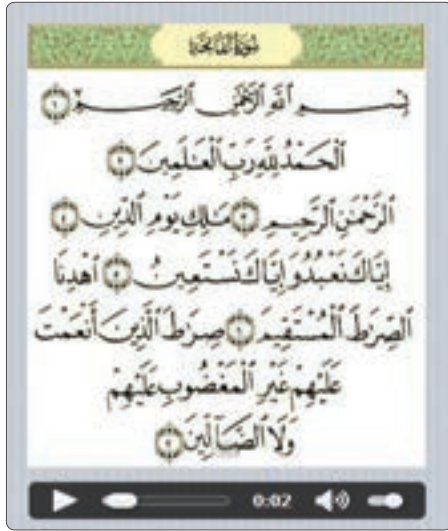 سُورَةُ الْفَاتِحَةِ
بِسْمِ ٱللَّهِ ٱلرَّحْمَٰنِ ٱلرَّحِيمِ ١
ٱلْحَمْدُ لِلَّهِ رَبِّ ٱلْعَٰلَمِينَ ٢
ٱلرَّحْمَٰنِ ٱلرَّحِيمِ ٣ مَٰلِكِ يَوْمِ ٱلدِّينِ ٤
إِيَّاكَ نَعْبُدُ وَإِيَّاكَ نَسْتَعِينُ ٥ ٱهْدِنَا
ٱلصِّرَٰطَ ٱلْمُسْتَقِيمَ ٦ صِرَٰطَ ٱلَّذِينَ أَنْعَمْتَ
عَلَيْهِمْ غَيْرِ ٱلْمَغْضُوبِ عَلَيْهِمْ
وَلَا ٱلضَّآلِّينَ ٧
0:02